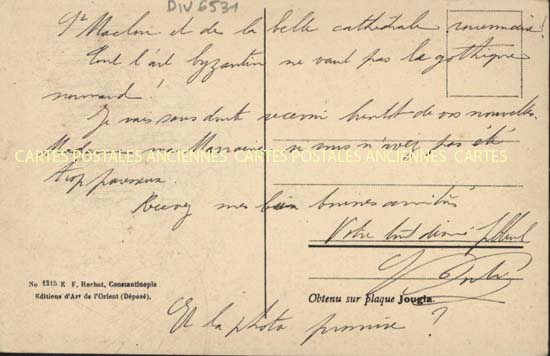 DIV 6531
St Maclou et de la belle cathédrale rouennaise!
Tout l'art byzantin ne vaut pas le gothique
normand!
Je vais sans doute recevoir bientôt de vos nouvelles
Madame ma Marraine si vous n'avez pas été
trop paresseuse.
Recevez mes bien bonnes amitiés
Votre tout dévoué filleul
Et la photo promise?
CARTES POSTALES ANCIENNES CARTES POSTALES ANCIENNES CARTES
No 1215 E. F. Rochat, Constantinople
Editions d'Art de l'Orient (Déposé),
Obtenu sur plaque Jougla.